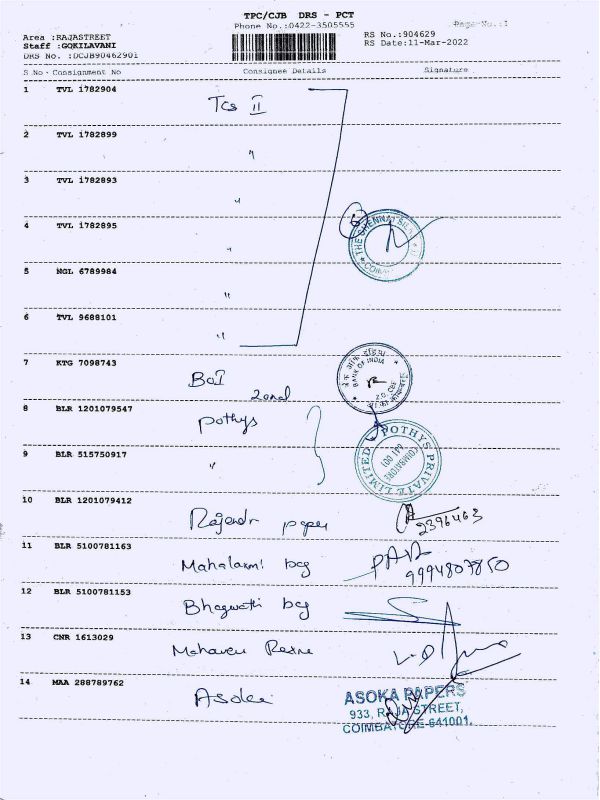 TPC/CJB DRS - PCT
Phone No.:0422-3505555
Page No.:1
Area :RAJASTREET
Staff :GQKILAVANI
DRS No. :DCJB90462901
RS No.:904629
RS Date:11-Mar-2022
S.No Consignment No Consignee Details Signature
1 TVL 1782904 Tcs II
2 TVL 1782899 "
3 TVL 1782893 "
4 TVL 1782895 "
THE CHENNAI SILKS
5 NGL 6789984 "
6 TVL 9688101 "
7 KTG 7098743 BOI Zonal
बैंक ऑफ इंडिया
BANK OF INDIA
8 BLR 1201079547 Pothys
9 BLR 515750917 "
POTHYS PRIVATE LIMITED
COIMBATORE
641 001
10 BLR 1201079412 Rajendr paper
2396463
11 BLR 5100781163 Mahalaxmi bag
9994807850
12 BLR 5100781153 Bhagwathi bag
13 CNR 1613029
14 MAA 288789762 Asoka
ASOKA PAPERS
933, RAJA STREET,
COIMBATORE-641001.